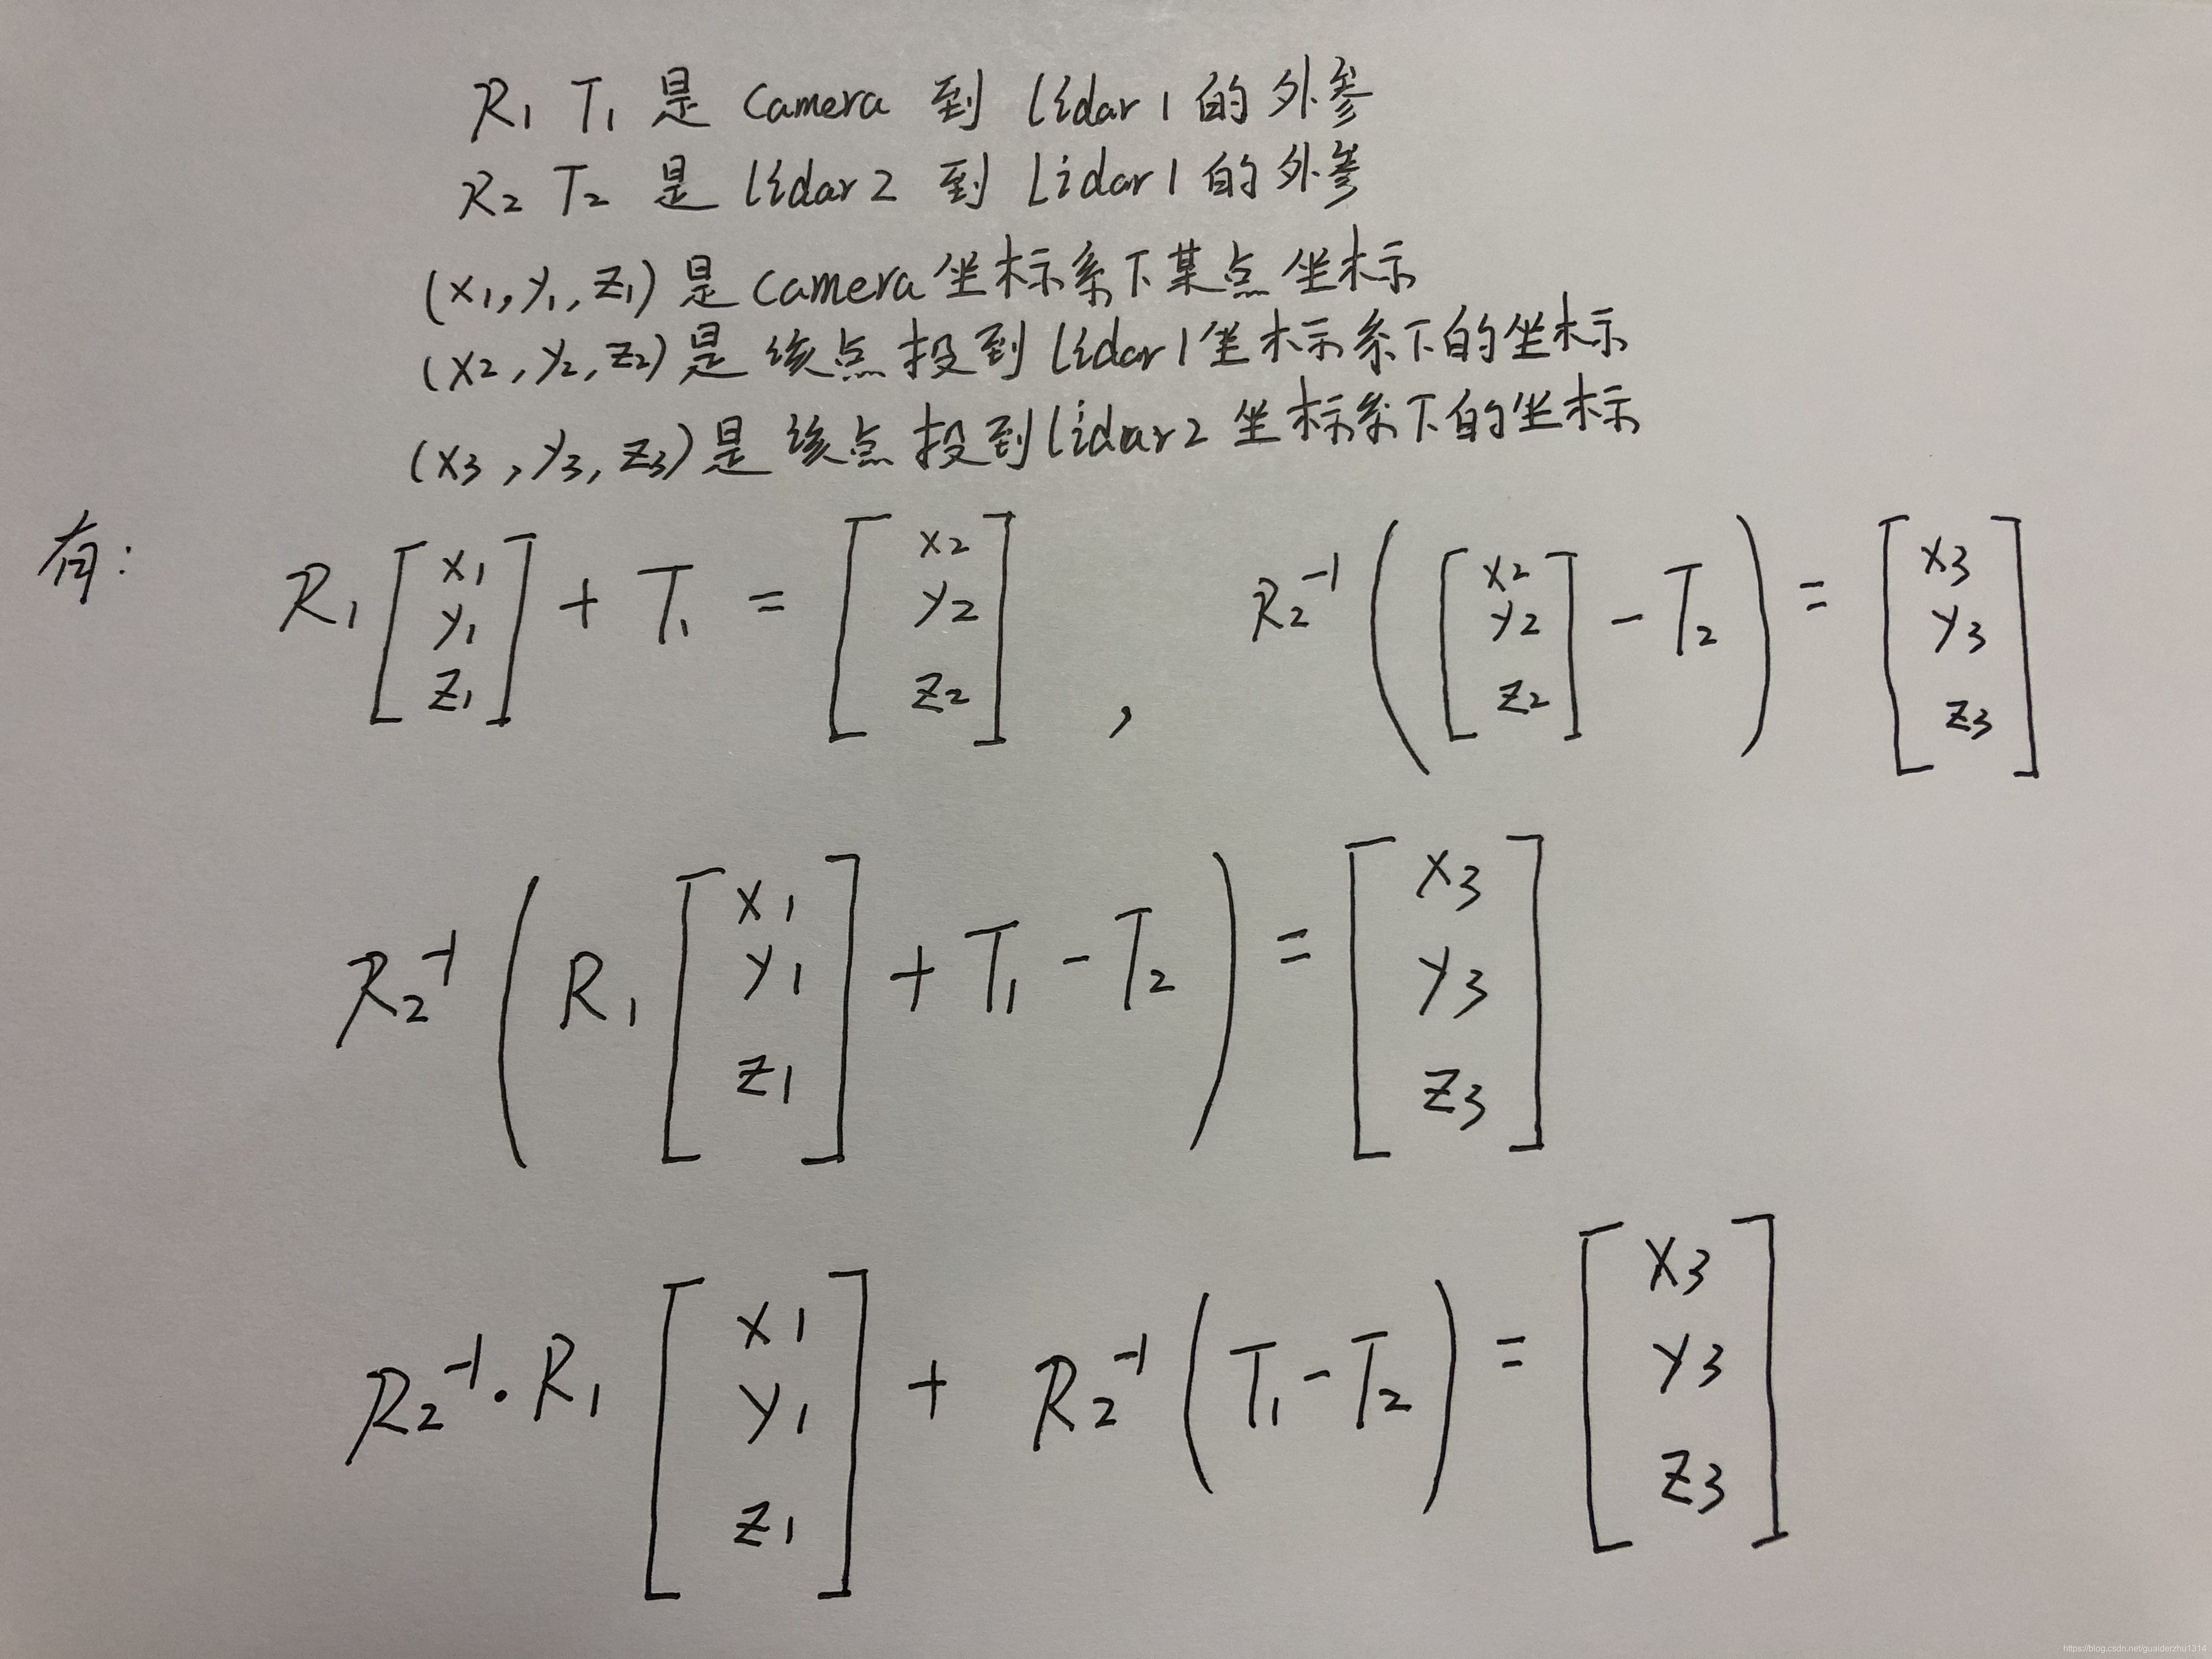 R₁ T₁ 是 Camera 到 lidar1 的外参
R₂ T₂ 是 lidar2 到 Lidar1 的外参
(x₁, y₁, z₁) 是 camera 坐标系下某点坐标
(x₂, y₂, z₂) 是该点投到 lidar1 坐标系下的坐标
(x₃, y₃, z₃) 是该点投到 lidar2 坐标系下的坐标
有: R₁ [x₁ y₁ z₁] + T₁ = [x₂ y₂ z₂] , R₂⁻¹ ( [x₂ y₂ z₂] - T₂ ) = [x₃ y₃ z₃]
R₂⁻¹ ( R₁ [x₁ y₁ z₁] + T₁ - T₂ ) = [x₃ y₃ z₃]
R₂⁻¹ · R₁ [x₁ y₁ z₁] + R₂⁻¹ ( T₁ - T₂ ) = [x₃ y₃ z₃]
https://blog.csdn.net/guaiderzhu1314